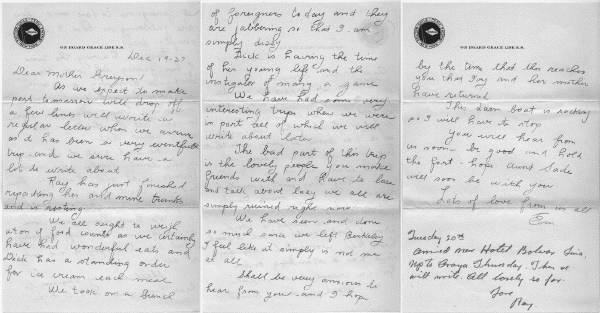 ON BOARD GRACE LINE S.S.
Dec 19-27
Dear Mother Grayson:
As we expect to make
port tomorrow will drop off
a few lines will write a
regular letter when we arrive
as it has been a very eventful
trip and we sure have a
lot to write about
Ray has just finished
repacking her and mine trunks
and is resting.
We all ought to weigh
a ton if food counts as we certainly
have had wonderful eats and
Dick has a standing order
for ice cream each meal
We took on a bunch
of foreigners today and they
are jabbering so that I am
simply dizzy
Dick is having the time
of her young life and the
instigator of many a game
We have had some very
interesting trips when we were
in port all of which we will
write about later
The bad part of this trip
is the lovely people you make
friends with and have to lose
and talk about lazy we all are
simply ruined right now
We have seen and done
so much since we left Berkeley
I feel like it simply is not me
at all
Shall be very anxious to
hear from you and I hope
ON BOARD GRACE LINE S.S.
by the time that this reaches
you that Fay and her mother
have returned
This darn boat is rocking
so I will have to stop
You will hear from
us soon. be good and hold
the fort - hope Aunt Sade
will soon be with you
Lots of love from us all
Tuesday 20th
arrived now Hotel Bolivar Lima,
up to Oroya Thursday. Then we
will write. All lovely so far.
Love
Ray